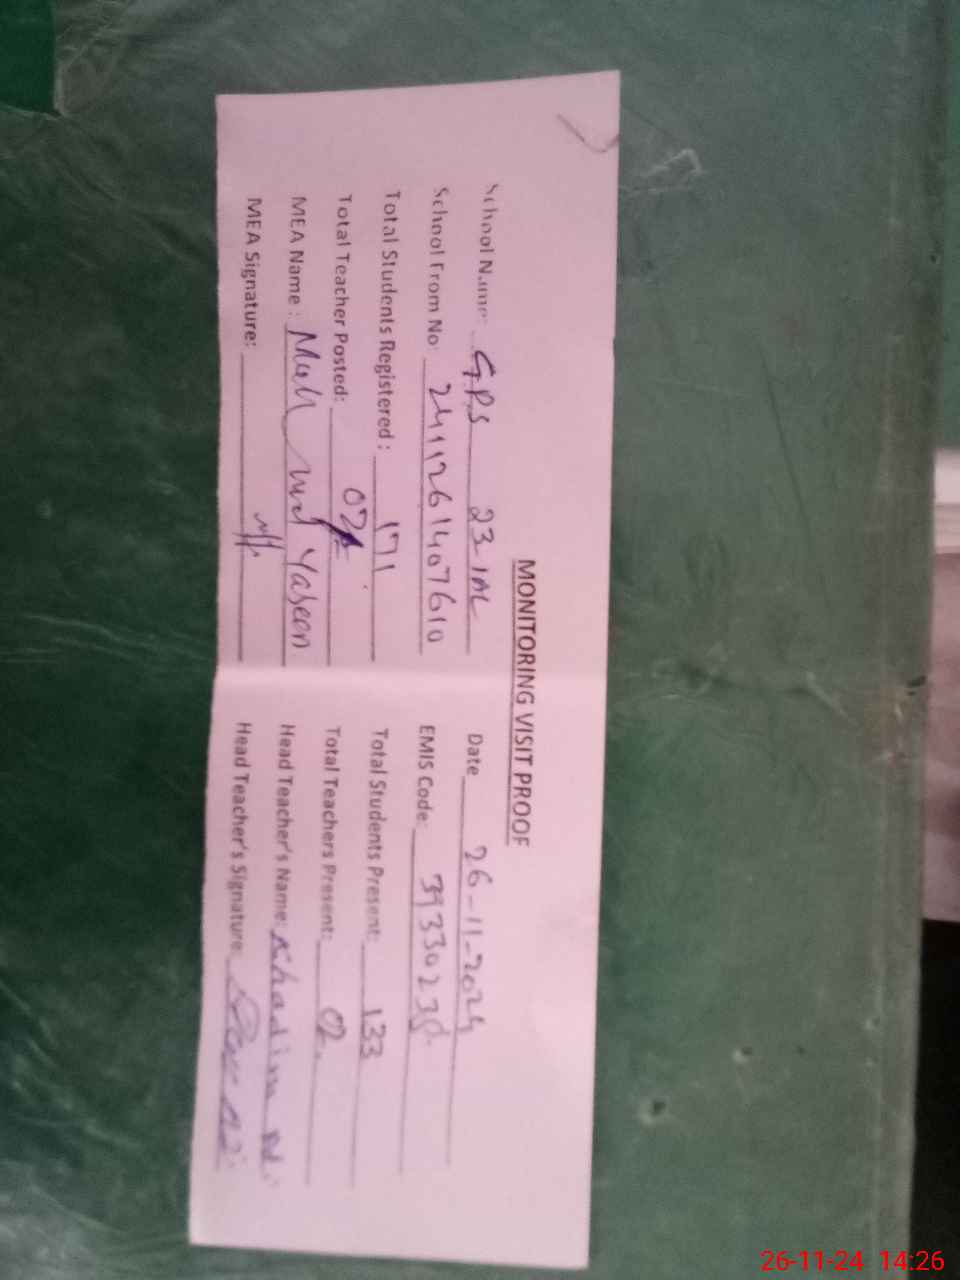 MONITORING VISIT PROOF
School Name: GPS 23-1AL Date 26-11-2024
School From No: 2411261407610 EMIS Code:
Total Students Registered: 171 Total Students Present: 133
Total Teacher Posted: 02 Total Teachers Present: 02.
MEA Name: Muhammad Yaseen Head Teacher's Name: Khadim
MEA Signature: Head Teacher's Signature:
26-11-24 14:26